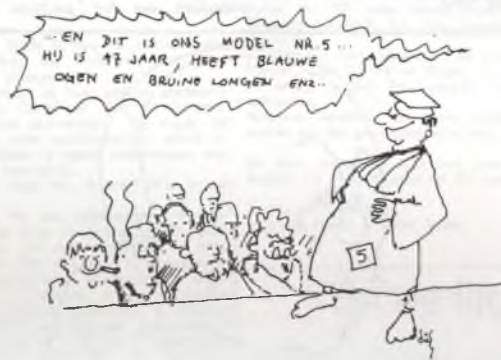 ...EN DIT IS ONS MODEL NR.5...
HIJ IS 47 JAAR, HEEFT BLAUWE
OGEN EN BRUINE LONGEN ENZ..
5